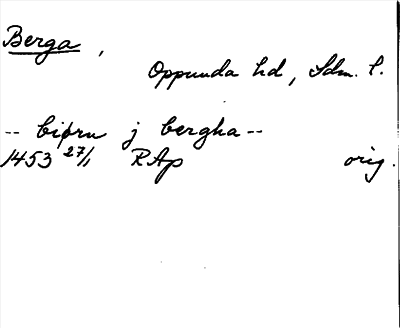 Berga,
Oppunda hd, Sdm. l.
-- biørn j bergha --
1453 27/1 RAp orig.